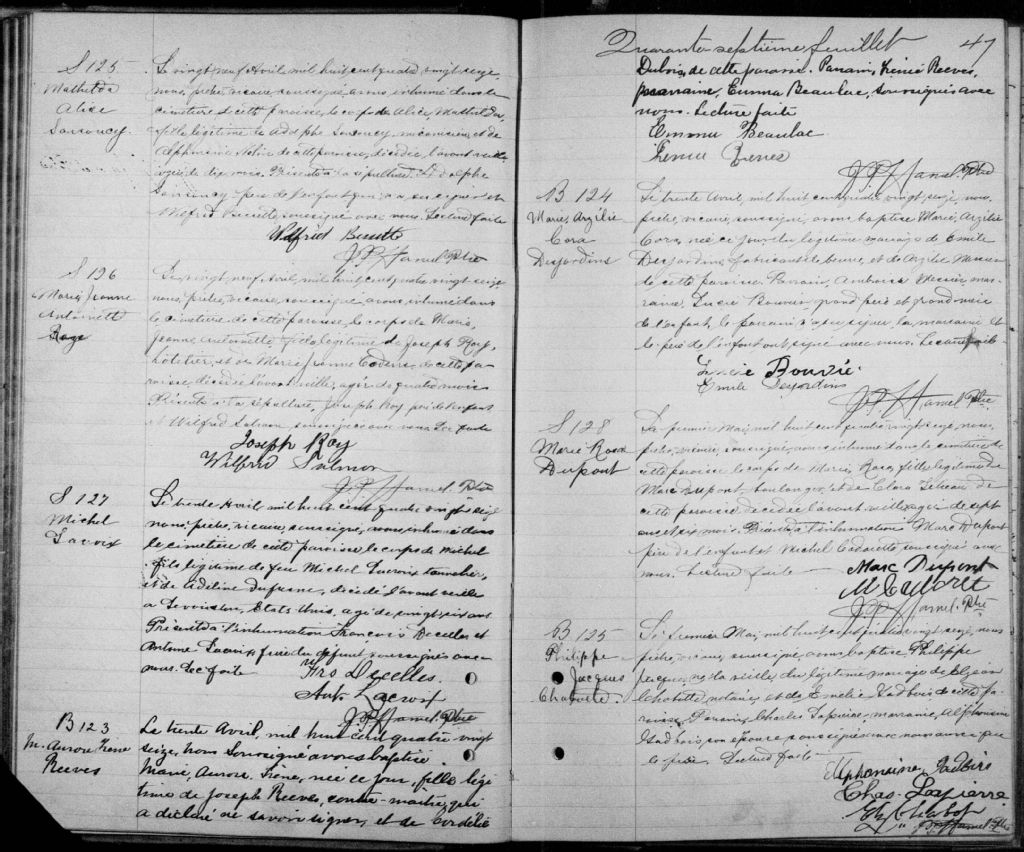 S 125
Mathilda
Alice
Sansoucy
Le vingt neuf Avril mil huit cent quatre vingt seize
nous, prêtre, vicaire, soussigné, avons inhumé dans le
cimetière de cette paroisse, le corps de Alice, Mathilda,
fille légitime de Adolphe Sansoucy, et de
de cette paroisse, décédée l'avant veille
agée de dix mois. Présents à la sépulture,
Sansoucy père de l'enfant qui n'a su signer et
Wilfrid Bessette, soussigné avec nous. Lecture faite
Wilfrid Bessette
J.P. Hamel. Ptre
S 126
Marie, Jeanne
Antoinette
Roy
Le vingt neuf Avril, mil huit cent quatre vingt seize
nous, prêtre, vicaire, soussigné, avons inhumé dans
le cimetière de cette paroisse, le corps de Marie,
Jeanne, Antoinette, fille légitime de Joseph Roy,
hôtelier, et de Marie Jeanne Coderre, de cette pa-
roisse, décédée l'avant veille, agée de quatre mois
Présents à la sépulture, Joseph Roy père de l'enfant
et Wilfrid Salmon, soussignés avec nous. Lec. faite
Joseph Roy
Wilfrid Salmon
J.P. Hamel. Ptre
S 127
Michel
Lacroix
Le trente Avril mil huit cent quatre vingt seize
nous, prêtre, vicaire, soussigné, avons inhumé dans
le cimetière de cette paroisse, le corps de Michel
fils légitime de feu Michel Lacroix
et de Adeline Dufresne, décédé l'avant veille
a Lewiston, Etats Unis, agé de vingt six ans
Présents à l'inhumation François Decelles et
Antoine Lacroix, frère du défunt soussignés avec
nous. Lec faite
Frs Decelles
Ant. Lacroix
J.P. Hamel. Ptre
B 123
M. Aurore Irène
Reeves
Le trente Avril, mil huit cent quatre-vingt
seize, Nous Soussigné avons baptisé
Marie, Aurore, Irène, née ce jour, fille légi-
time de Joseph Reeves, contre-maître, qui
a déclaré ne savoir signer, et de Cordélie
Quarante-septième feuillet 47
Dubois, de cette paroisse. Parrain, Irénée Reeves,
marraine, Emma Beaulac, soussignés avec
nous. Lecture faite
Emma Beaulac
J.P. Hamel. Ptre
B 124
Marie, Azilie
Cora
Desjardins
Le trente Avril, mil huit cent quatre vingt seize, nous,
prêtre, vicaire, soussigné, avons baptisé Marie, Azilie
Cora, née ce jour du légitime mariage de Emile
Desjardins, fabricant de beurre, et de Azilie
de cette paroisse. Parrain, Ambroise mar-
raine, Lucie Bouvier grand père et grand mère
de l'enfant, le parrain n'a su signer, la marraine et
le père de l'enfant ont signé avec nous. Lecture faite
Lucie Bouvié
Emile Desjardins
J.P. Hamel. Ptre
S 128
Marie Rosa
Dupont
Le premier Mai, mil huit cent quatre vingt seize, nous,
prêtre, vicaire, soussigné, avons inhumé dans le cimetière de
cette paroisse le corps de Marie, Rosa, fille légitime de
Marc Dupont, boulanger, et de Clara de
cette paroisse décédée l'avant veille agée de sept
ans et six mois. Présents à l'inhumation Marc Dupont
père de l'enfant et Michel Cadorette soussignés avec
nous. Lecture faite
Marc Dupont
J.P. Hamel. Ptre
B 125
Philippe
Jacques
Chabotte
Le premier Mai, mil huit cent quatre vingt seize, nous
prêtre, vicaire, soussigné, avons baptisé Philippe
Jacques, né la veille du légitime mariage de
Chabotte notaire, et de Emélie Nadbois de cette pa-
roisse. Parrain, Charles Lapierre, marraine, Alphonsine
Nadbois, son épouse soussignés avec nous ainsi que
le père. Lecture faite
Alphonsine Nadbois
Chas. Lapierre
J.P. Hamel. Ptre